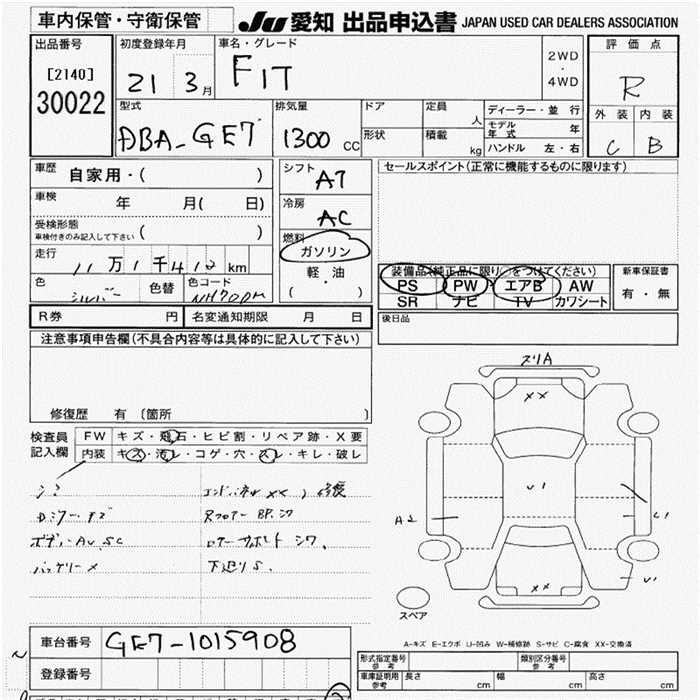 車内保管・守衛保管
JU 愛知 出品申込書 JAPAN USED CAR DEALERS ASSOCIATION
出品番号
[2140]
30022
初度登録年月
21 3月
車名・グレード
FIT
2WD
・
4WD
評価点
R
外装 内装
C B
型式
DBA-GE7
排気量
1300 CC
ドア
形状
定員
人
積載
kg
ディーラー・並行
モデル年式 年
ハンドル 左・右
車歴
自家用・( )
車検
年 月( 日)
受検形態
車検付きのみ記入して下さい ( )
走行
11万1千412km
色
シルバー
色替
色コード
NH700M
シフト
AT
冷房
AC
燃料
ガソリン
軽・油
( ・ )
セールスポイント(正常に機能するものに限ります)
装備品(純正品に限り○をつけてください)
PS PW エアB AW
SR ナビ TV カワシート
新車保証書
有・無
R券 円 名変通知期限 月 日
後日品
注意事項申告欄(不具合内容等は具体的に記入して下さい)
修復歴 有 〔箇所 〕
検査員
記入欄
FW キズ・飛石・ヒビ割・リペア跡・X要
内装 キズ・汚レ・コゲ・穴・スレ・キレ・破レ
シミ
ボデーAU, SC
バッテリーX
下廻りS.
スリA
XX
U1
A2
C1
U1
XX
スペア
A-キズ E-エクボ U-凹み W-補修跡 S-サビ C-腐食 XX-交換済
車台番号 GE7-1015908
登録番号
形式指定番号
参考
類別区分番号
参考
車庫証明用
参考
長さ cm 幅 cm 高さ cm